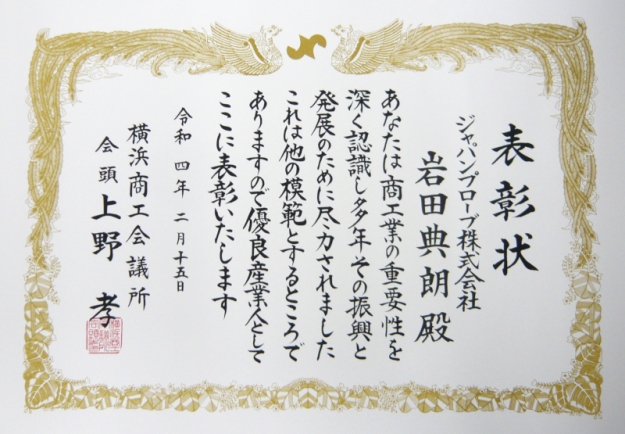 表彰状
ジャパンプローブ株式会社
岩田典朗殿
あなたは商工業の重要性を
深く認識し多年その振興と
発展のために尽力されました
これは他の模範とするところで
ありますので優良産業人として
ここに表彰いたします
令和四年二月十五日
横浜商工会議所
会頭上野孝